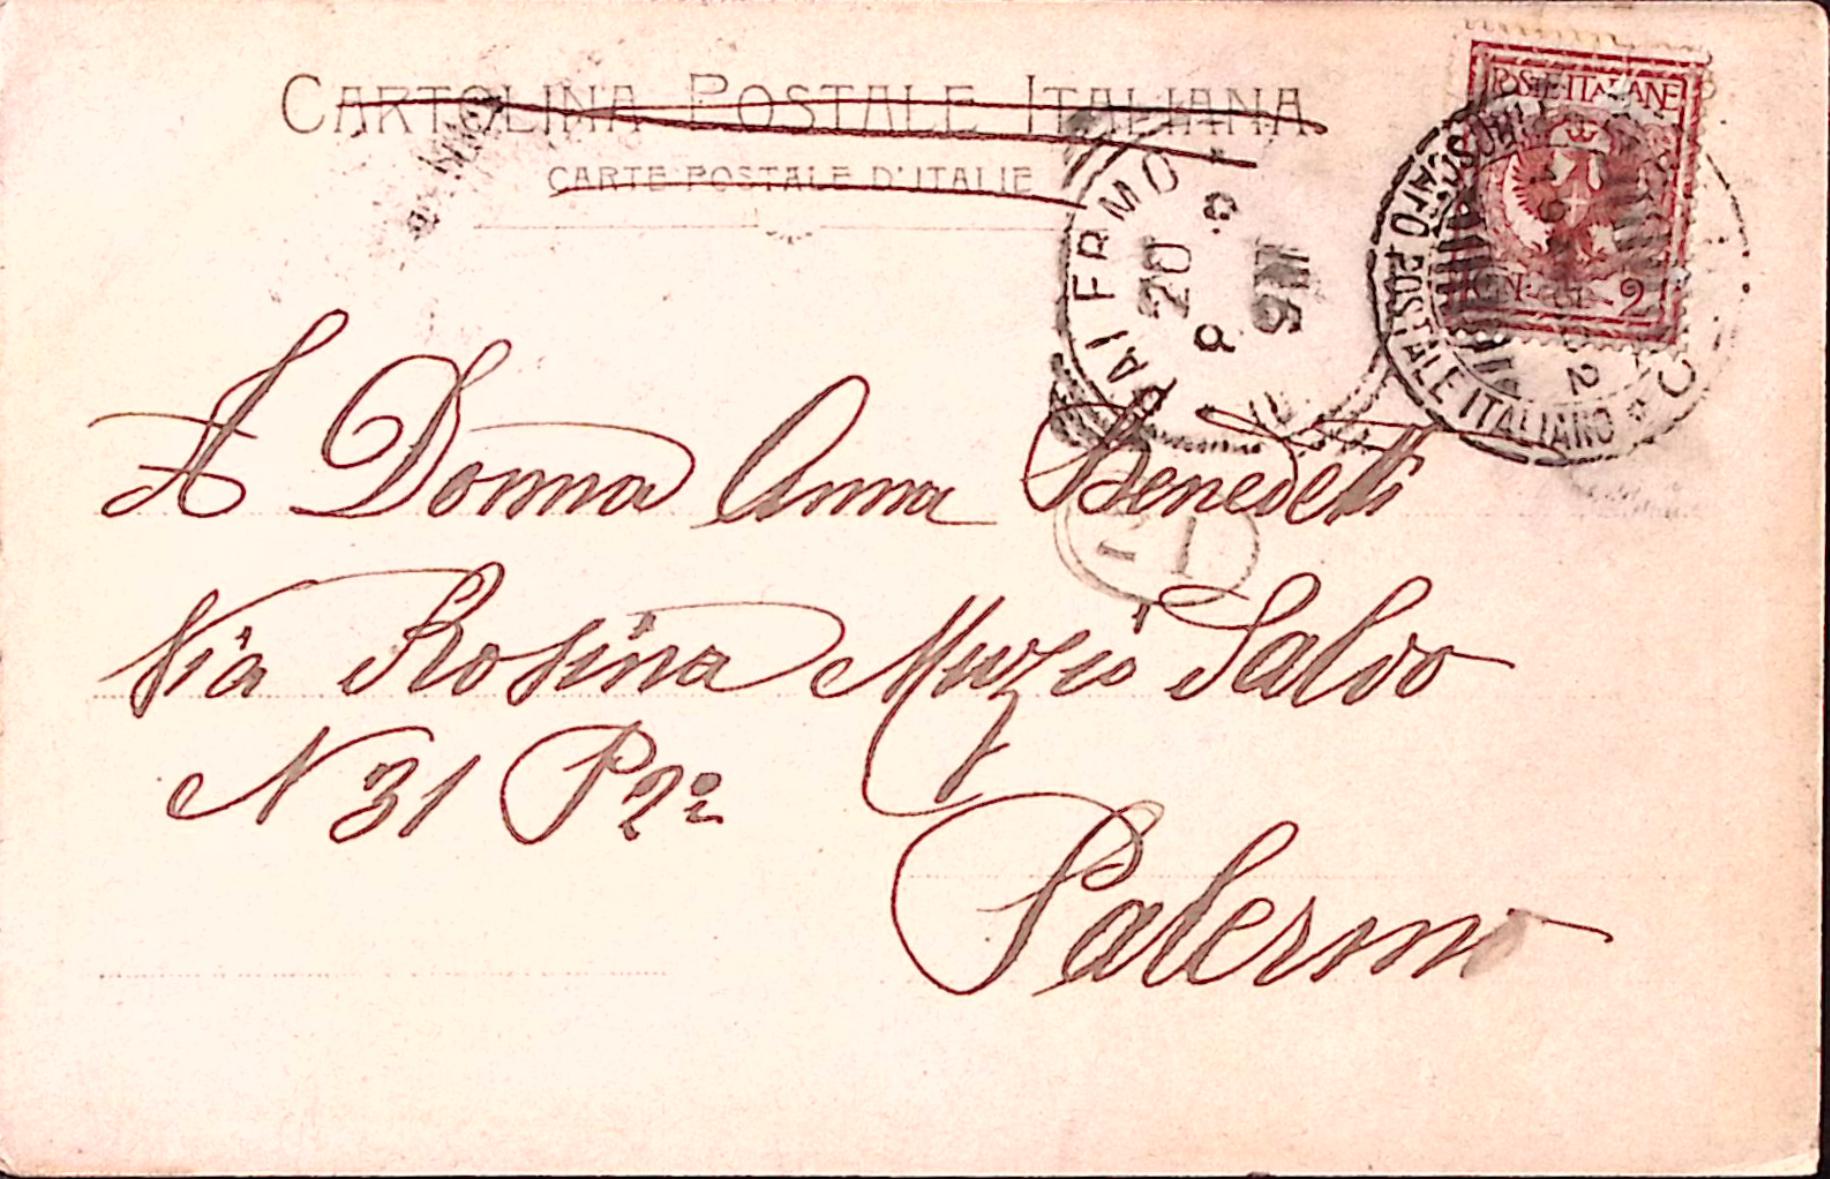 CARTOLINA POSTALE ITALIANA
CARTE POSTALE D'ITALIE
POSTE ITALIANE
2
PALERMO
20
6
POSTALE ITALIANO
21
A Donna Anna Benedetti
Via Rosina Muzio Salvo
N 31 P 2º
Palermo